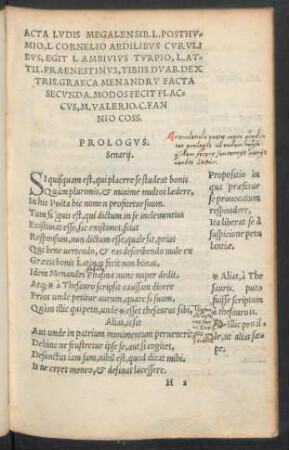 ACTA LVDIS MEGALENSIB. L. POSTHV-
MIO, L. CORNELIO AEDILIBVS CVRVLI
BVS, EGIT L. AMBIVIVS TVRPIO, L. AT-
TIL. PRAENESTINVS, TIBIIS DVAB. DEX
TRIS. GRAECA MENANDRV FACTA
SECVNDA. MODOS FECIT FLAC-
CVS, M. VALERIO. C. FAN
NIO COSS.
PROLOGVS.
Senarij.
SI quisquam est, qui placere se studeat bonis
Quàm plurimis, & minime multos lædere,
In his Poëta hic nomen profitetur suum.
Tum si quis est, qui dictum in se inclementius
Existimat esse, sic existimet, sciat
Responsum, non dictum esse, quia
Qui bene vertendo, & eas describendo male ex
Græcis bonis Latinas fecit non bonas,
Idem Menandri Phasma nunc nuper dedit.
Atq; * à Thesauro scripsit causam dicere
Prius unde petitur aurum, quare sit suum,
Quàm illic qui petit, unde * esset thesaurus sibi,
Aut unde in patrium monumentum peruenerit.
Dehinc ne frustretur ipse se, aut sic cogitet,
Defunctus iam sum, nihil est, quod dicat mihi.
Is ne erret moneo, & desinat lacessere.
Propositio in
qua præfitur
se prouocatum
respondere,
Ita liberat se à
suspicione petu
lantiæ.
* Aliàs, à The
sauris. puto
fuisse scriptum
à thesauro
illic pro il
le, ut aliàs sæ
pe.
H 2